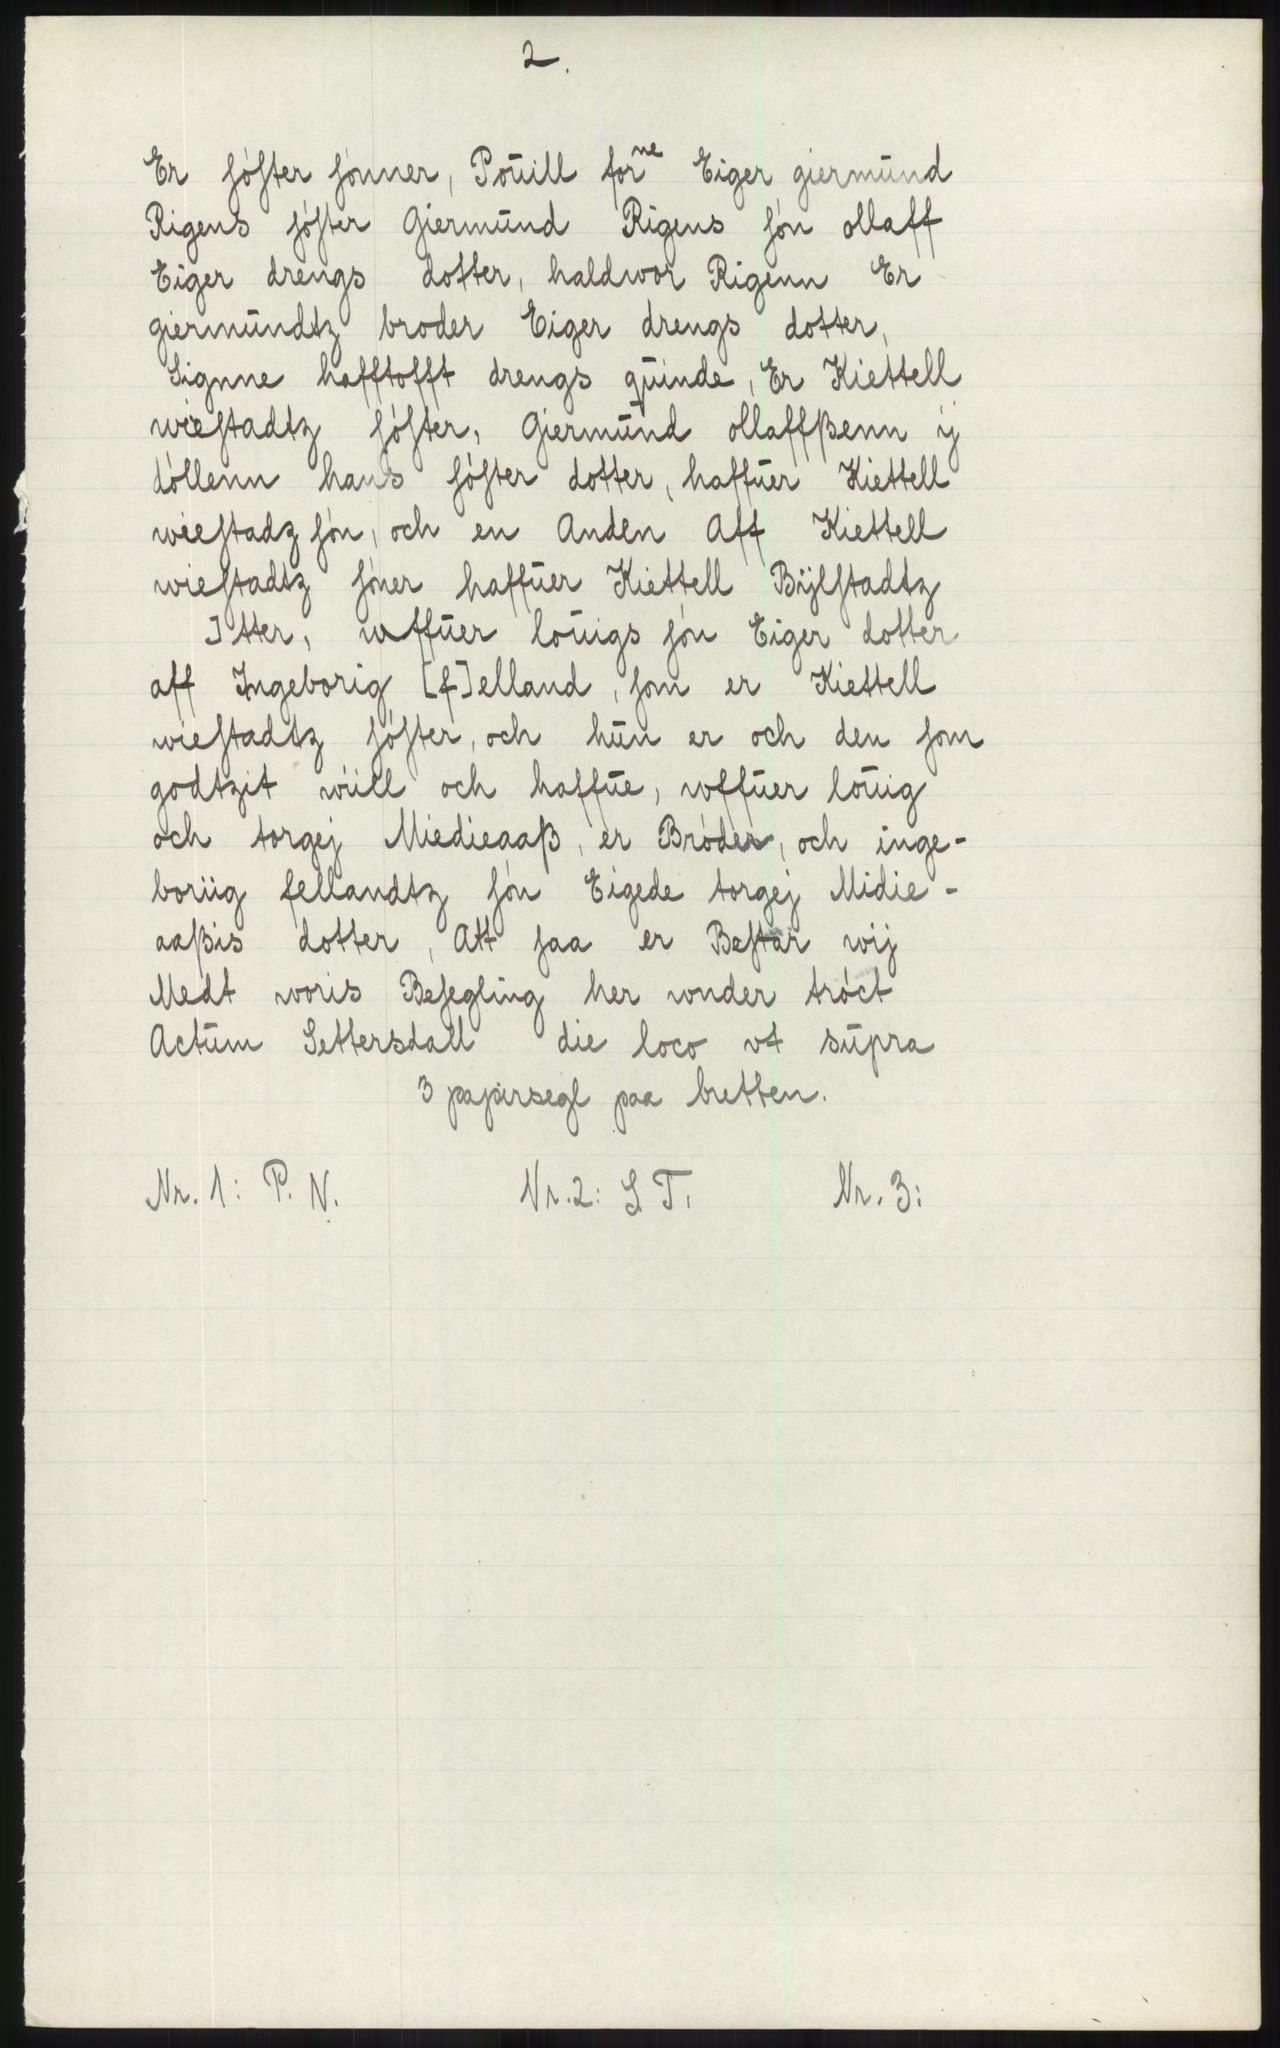 2.
Er søster sønner, Poŭill forne Eiger giermŭnd
Rigens søster Giermŭnd Rigens søn ollaff
Eiger drengs dotter, haldwor Rigenn Er
giermŭndtz broder Eiger drengs dotter,
Signne hafftofft drengs qŭinde, Er Kiettell
wiestadtz søster, Giermŭnd ollaffßenn ij
døllenn hans søster dotter, haffŭer Kiettell
wiestadz søn, och en Anden Aff Kiettell
wiestadtz søner haffŭer Kiettell Bijlstadtz
]tter, wffŭer loŭigs søn Eiger dotter
aff Ingeborig [f]elland, som er Kiettell
wiestadtz søster, och hŭn er och den som
godtzit wiill och haffŭe, wffŭer loŭig
och torgej Miedieaaß, er Brøder, och inge-
boriig fellandtz søn Eigede torgej Midie-
aaßis dotter, Att saa er Bestar wij
Medt woris Besegling her wnder trøct
Actŭm Settersdall die loco vt sŭpra
3 papirsegl paa bretten.
Nr. 1: P. N. Nr. 2: S T. Nr. 3: